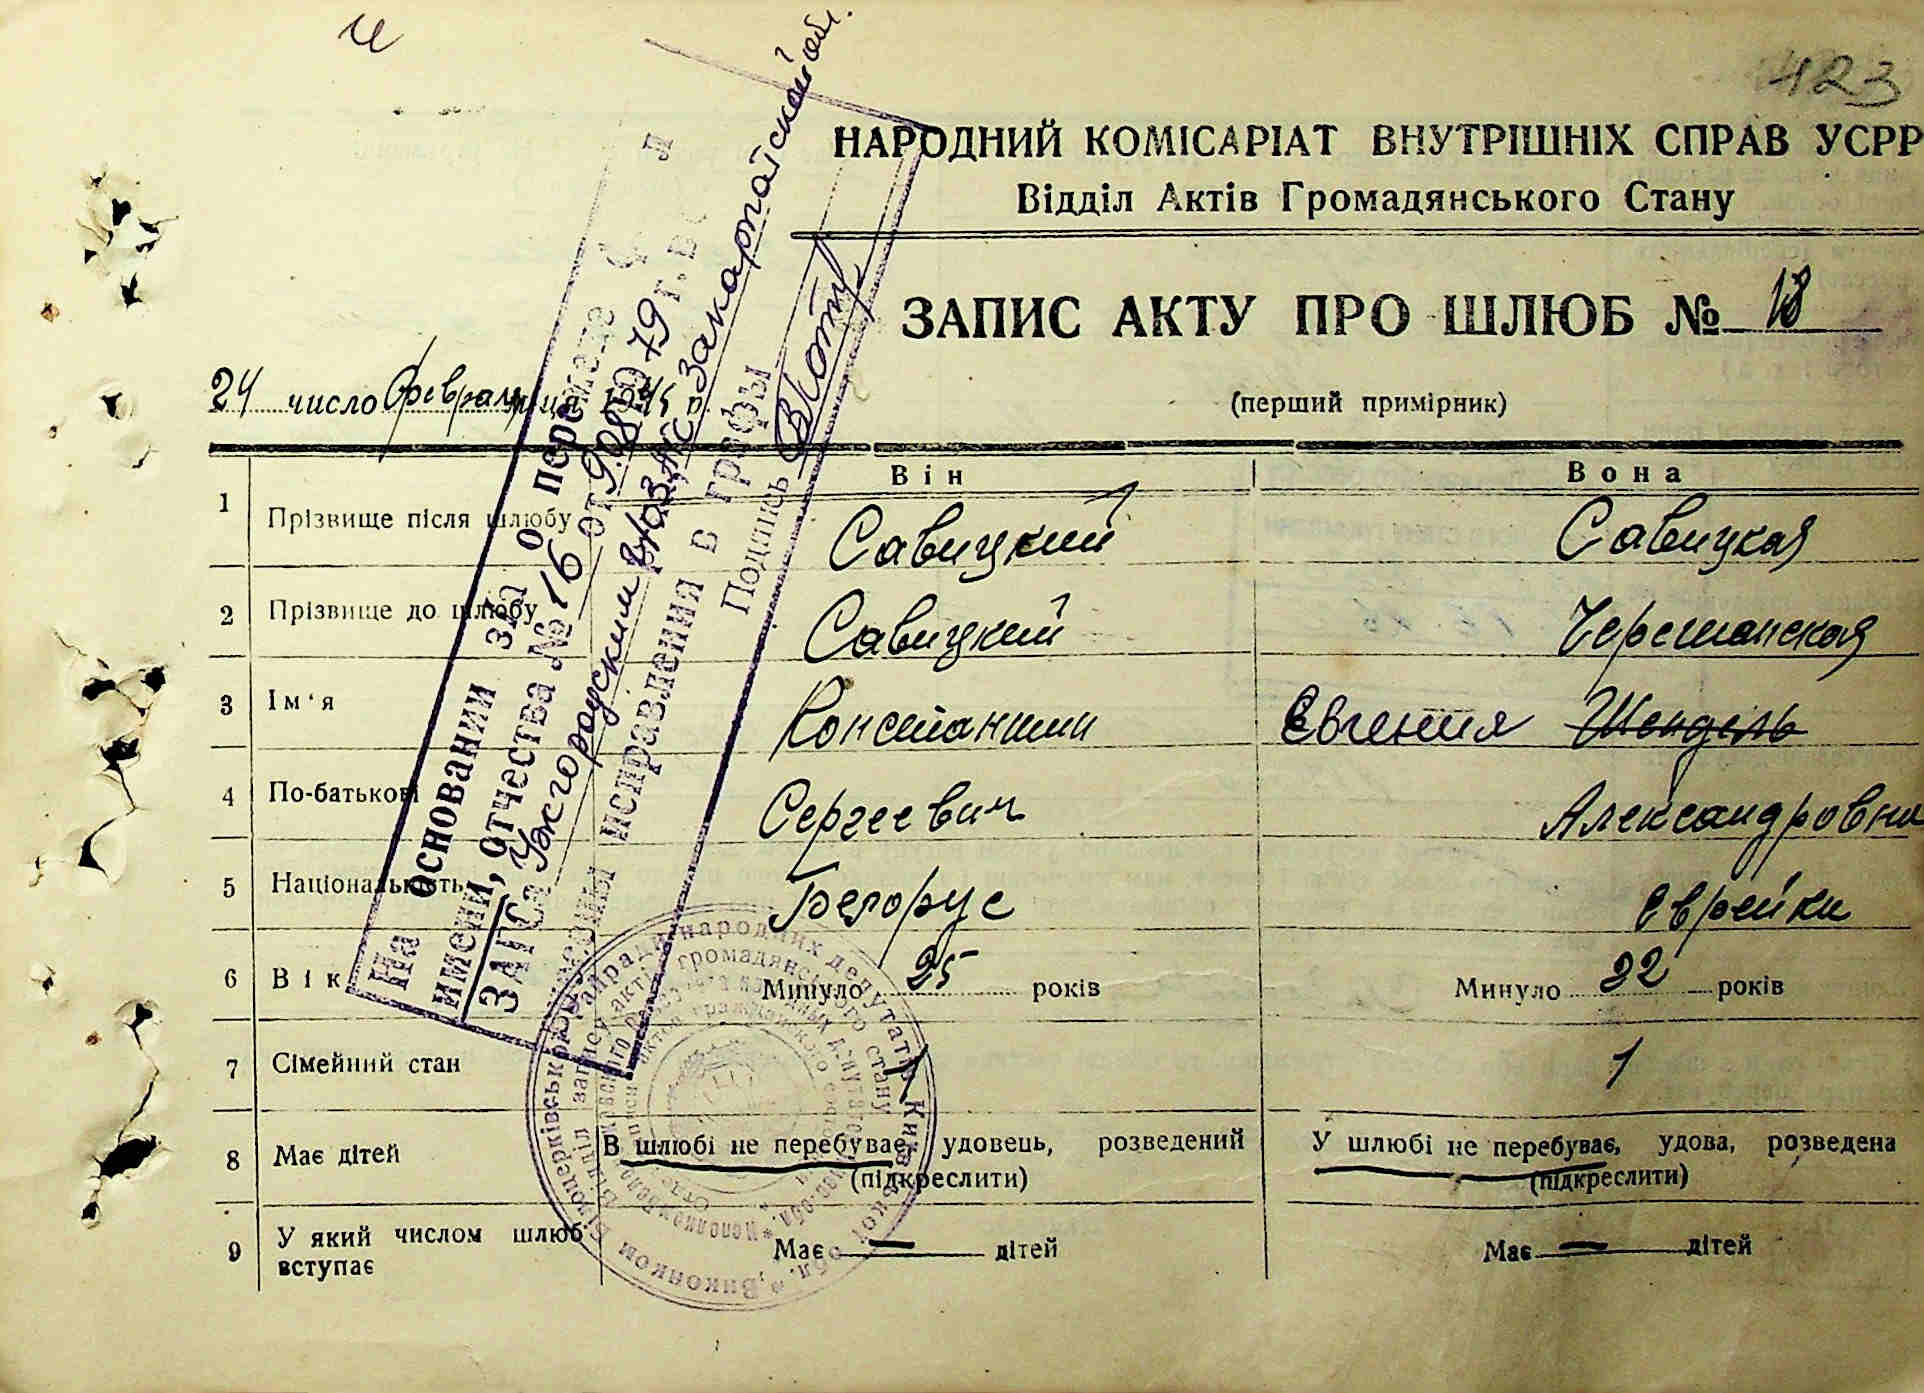 и
423
НАРОДНИЙ КОМІСАРІАТ ВНУТРІШНІХ СПРАВ УСРР
Відділ Актів Громадянського Стану
ЗАПИС АКТУ ПРО ШЛЮБ № 18
(перший примірник)
24 число февраля 1945 р.
На основании зка о перемене
имени, отчества № 16 от 9.08.1979 г.
ЗАГСа Ужгородским
Закарпатской обл.
исправления в графы
Подпись
Він Вона
1 Прізвище після шлюбу Савицкий Савицкая
2 Прізвище до шлюбу Савицкий Черешанская
3 Ім'я Константин Евгения Шендель
4 По-батькові Сергеевич Александровна
5 Національність Белорус Еврейка
6 Вік Минуло 25 років Минуло 22 років
7 Сімейний стан 1 1
8 Має дітей В шлюбі не перебуває, удовець, розведений У шлюбі не перебуває, удова, розведена
(підкреслити) (підкреслити)
9 У який числом шлюб вступає Має — дітей Має — дітей